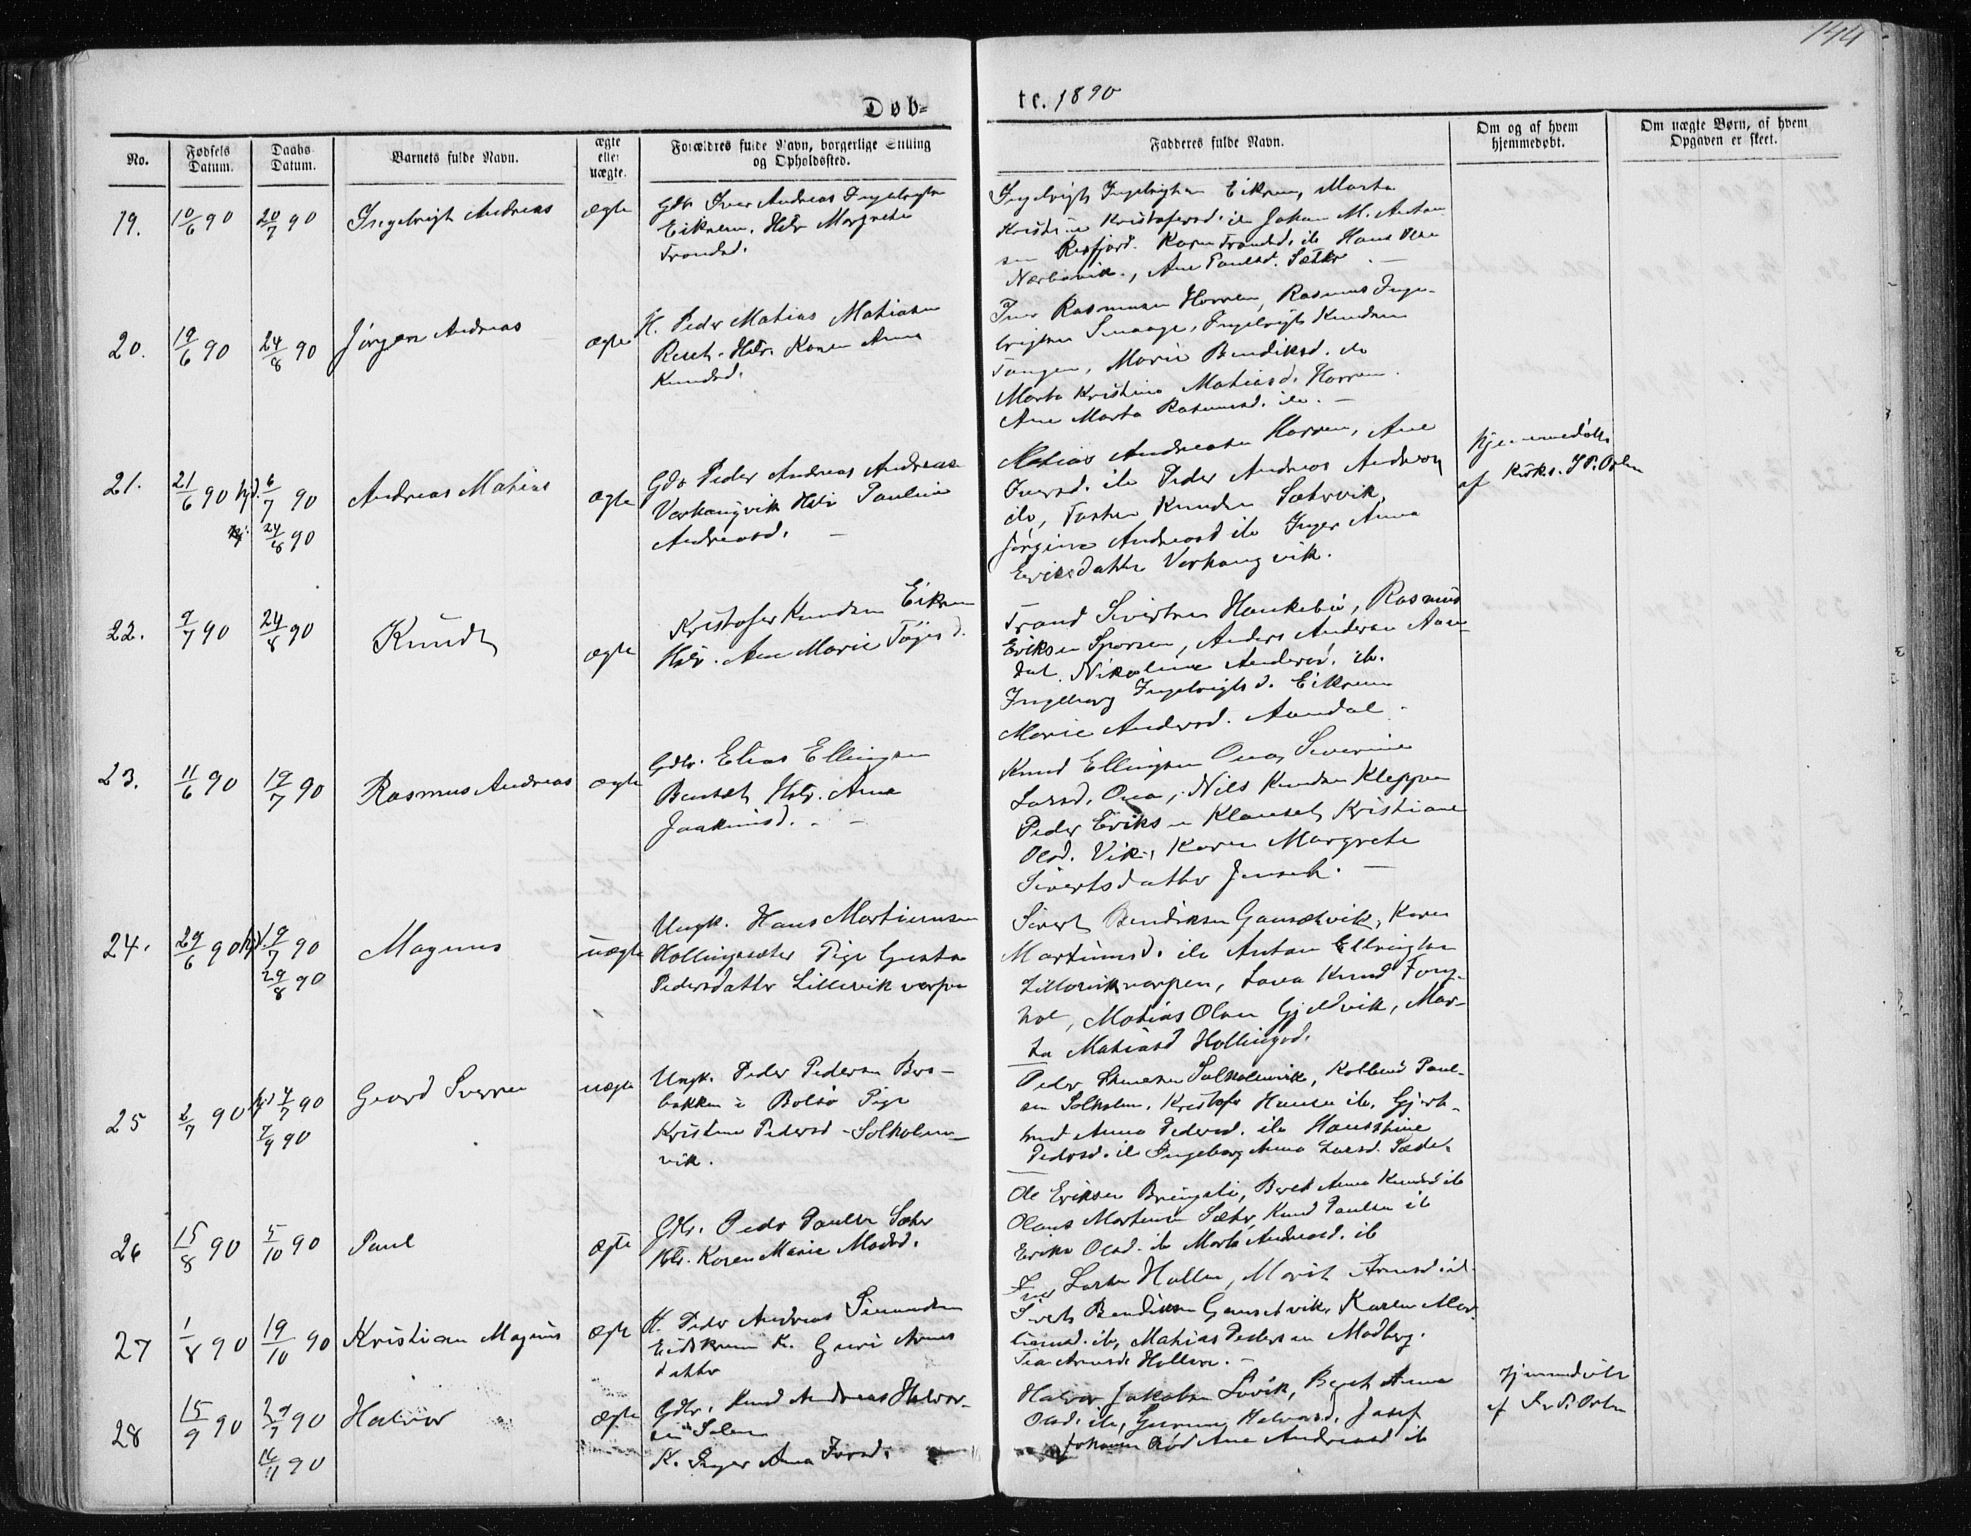 144
Døb-
te. 1890
No.
Fødsels Datum.
Daabs Datum.
Barnets fulde Navn.
ægte eller uægte.
Forældres fulde Navn, borgerlige Stilling og Opholdssted.
Fadderes fulde Navn.
Om og af hvem hjemmedøbt.
Om uægte Børn, af hvem Opgaven er skeet.
19. 10/6 90 20/7 90 Ingebrigt Andreas ægte
Gdb. Iver Andreas Ingebrigtsen
Eikrem. Hstr Margrete
Trondsd.
Ingebrigt Ingebrigtsen Eikrem, Marta
Kristine Kristofersd. ib Johan M. Anton
sen Risfjord. Karen Trondsd. ib Hans Olsen
Nerbøvik, Ane Paulsd. Sæter. —
20. 19/6 90 24/8 90 Jørgen Andreas ægte
H. Peder Matias Matiasen
Reset. Hstr. Karen Anna
Knudsd.
Iver Rasmusen Horrem, Rasmus Inge-
brigtsen Smaage, Ingebrigt Knudsen
Tangen, Marie Bendiksd. ib
Marta Kristina Matiasd. Horrem.
Ane Marta Rasmusd. ib. —
21. 21/6 90 hjd. 6/7 90 Andreas Matias ægte
24/8 90
Gdb Peder Andreas Andreasen
Varhaugvik Hstr Pauline
Andreasd. —
Matias Andreasen Horrem, Ane
Iversd. ib Peder Andreas Andersen
ib, Torsten Knudsen Sætervik,
Jørgine Andreasd ib Inger Anna
Eriksdatter Varhaugvik.
hjemmedøbt
af Kirks. J P. Orten
22. 9/7 90 24/8 90 Knudt ægte
Kristofer Knudsen Eikrem
Hstr. Ane Marie Tøgesd.
Trond Sivertsen Haukebø, Rasmus
Eriksen Sporsem, Anders Andersen Aan-
dal, Nikoline Andersd. ib.
Ingeborg Ingebrigtsd. Eikrem
Marie Andersd. Aandal.
23. 11/6 90 19/7 90 Rasmus Andreas ægte
Gdbr. Elias Ellingsen
Bensæt. Hstr. Ane
Joakimsd. —
Knud Ellingsen Ona, Severine
Larsd. Ona, Nils Knudsen Kleppen
Peder Eriksen Klauset, Kristiane
Olsd. Vik, Karen Margrete
Sivertsdatter Jenset. —
24. 29/6 90 hjd. 19/7 90 Magnus uægte
29/8 90
Ungk. Hans Martinusen
Hollingsæter Pige Gusta
Pedersdatter Lillevikvarpen
Sivert Bendiksen Gansetvik, Karen
Martinusd. ib Anton Ellingsen
Lillevikvarpen, Lava Knud
Matias Olsen Gjeldvik, Mar-
ta Matiasd Hollings.
25 2/7 90 hjd 4/7 90 Gerard Sverre uægte
7/9 90
Ungk. Peder Pedersen Ber-
bakken i Bolsø Pige
Kristine Pedersd - Solholm-
vik.
Peder Solholmvik, Kolbend Paul-
sen Solholm, Kristofer Hansen ib, Gjert-
rud Anna Pedersd. ib Hansine
Pedersd. ib Ingeborg Anna Larsd. Sæter.
26 15/8 90 5/10 90 Paul ægte
Gdbr. Peder Paulsen Sæter
Hstr. Karen Marie Madsd.
Ole Eriksen Bringsli, Beret Anna Knudsd ib
Olaus Martinsen Sæter, Knud Paulsen ib
Erika Olsd. ib Marta Andreasd. ib
27 1/8 90 19/10 90 Kristian Magnus ægte
H. Peder Andreas Simundsen
Eidskrem K. Guri Arnes
datter
Iver Larsen Hollen, Marit Arnesd ib
Sivert Bendiksen Gansetvik, Karen Mar-
tinusd. ib, Matias Pedersen Modberg.
Arnesd. Hollen. —
28 15/9 90 29/9 90 Halvor ægte
16/11 90
Gdbr. Knud Andreas Halvor-
sen Solem
K. Inger Anna Iversd.
Halvor Jakobsen Solvik, Beret Anna
Olsd. ib, Halvorsd. Josef
Johansen Rød Ane Andreasd ib
Hjemmedøbt
af P. Orten